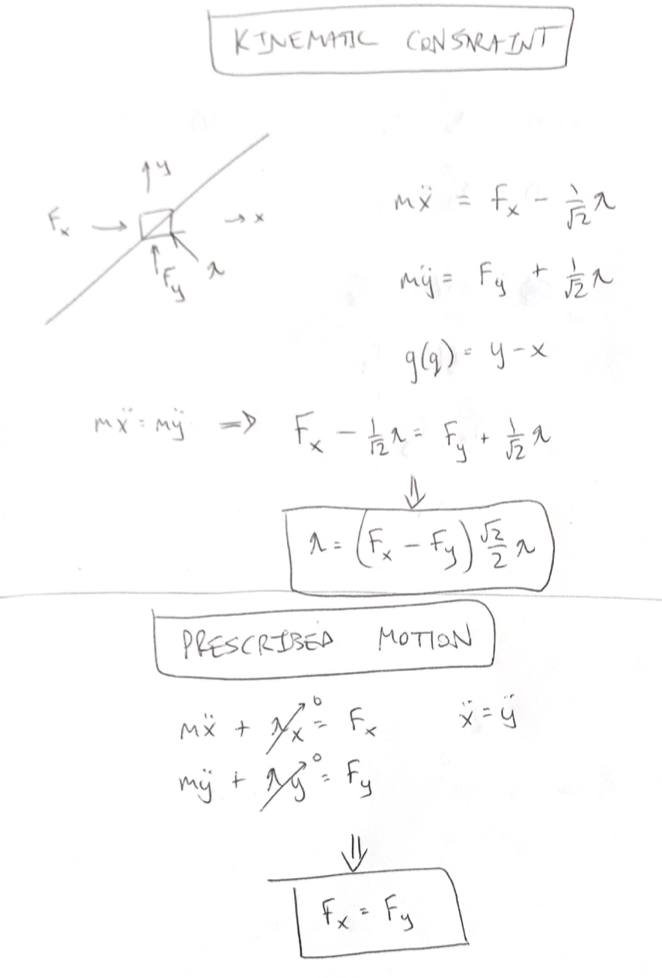 KINEMATIC CONSRAINT
y
F_x → → x
F_y λ
mẍ = F_x - 1/√2 λ
mÿ = F_y + 1/√2 λ
g(q) = y - x
mẍ = mÿ ⇒ F_x - 1/√2 λ = F_y + 1/√2 λ
⇓
λ = (F_x - F_y) √2/2 λ
PRESCRIBED MOTION
mẍ + λ_x 0 = F_x ẍ = ÿ
mÿ + λ_y 0 = F_y
⇓
F_x = F_y